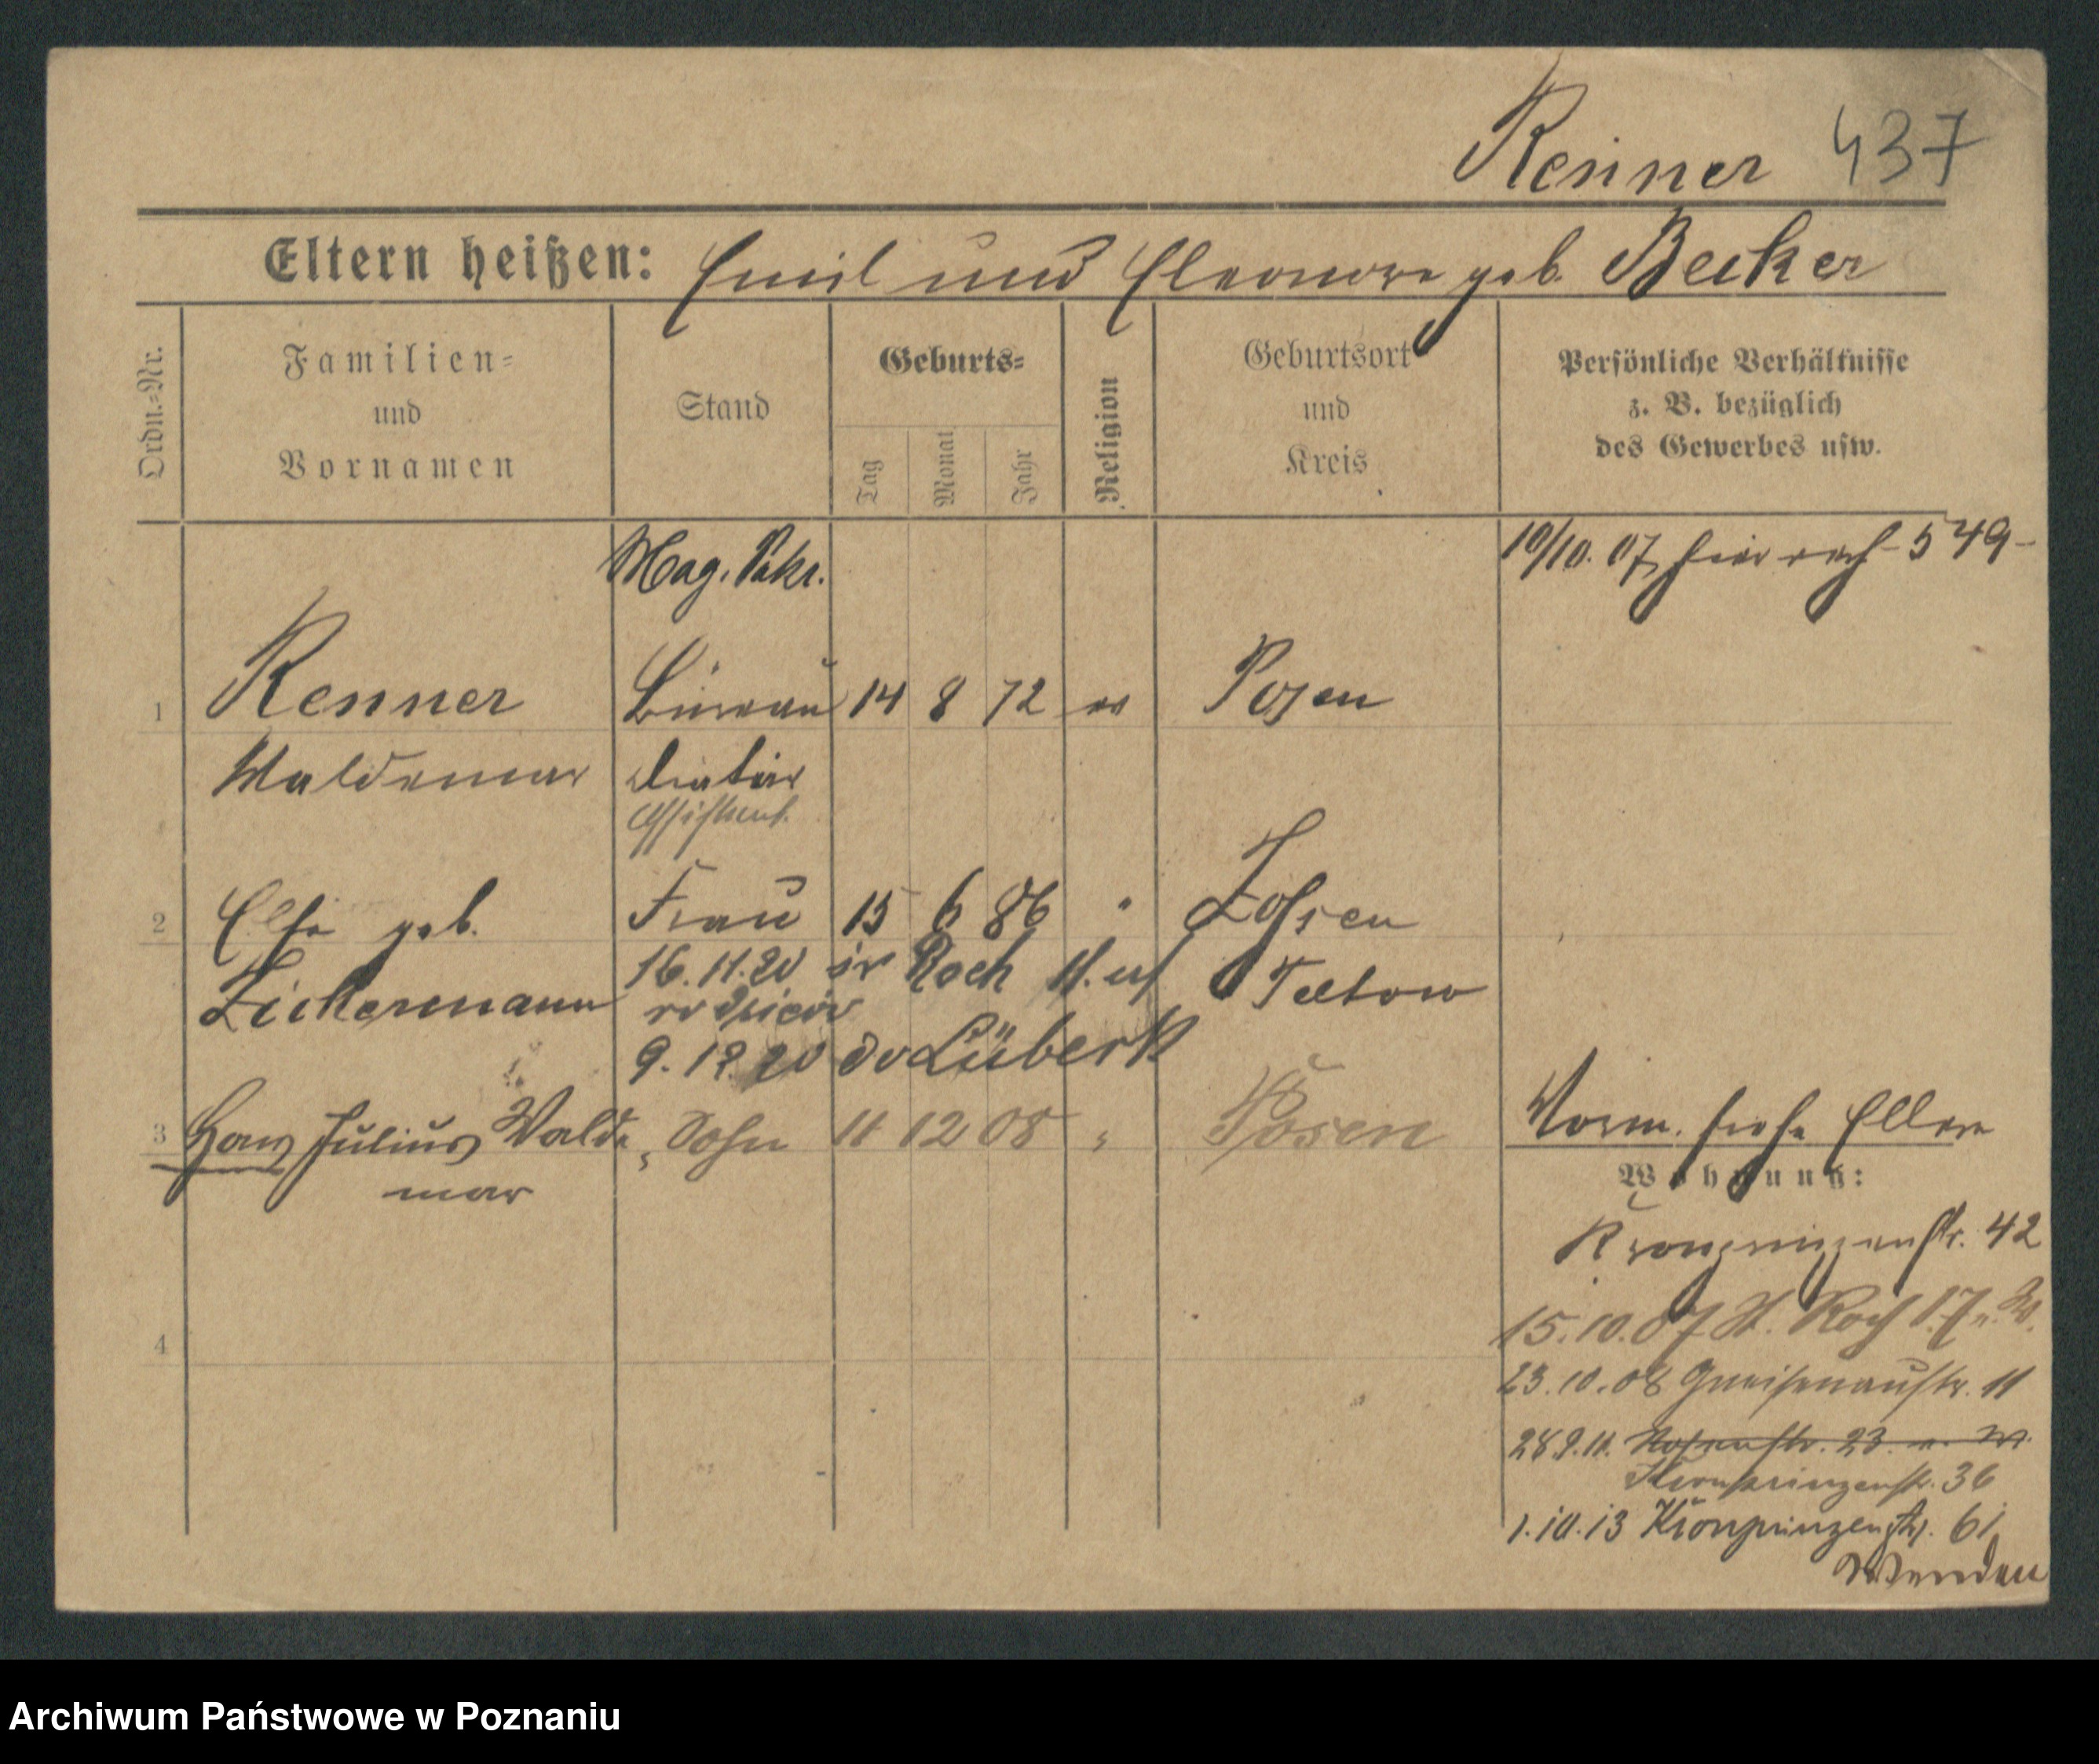 Renner 437
Eltern heißen: Emil und Eleonore geb. Becker
Ordn.=Nr.
Familien=
und
Vornamen
Stand
Geburts=
Tag
Monat
Jahr
Religion
Geburtsort
und
Kreis
Persönliche Verhältnisse
z. B. bezüglich
des Gewerbes usw.
Mag. Sekr.
10/10. 07 hier nach 549
1 Renner Bureau 14 8 72 ev Posen
Waldemar Diätar
Assistent.
2 Else geb. Frau 15 6 86 " Zossen
Zickermann Teltow
16.11.20 Roch 11.
9.12.20 Lübeck
3 Hans Julius Walde Sohn 11 12 08 " Posen
mar
Worm. siehe Eltern
Wohnung:
Kronprinzenstr. 42
15.10.07 St. Roch 17
23.10.08 Gneisenaustr. 11
28.9.11. 23
Kronprinzenstr. 36
1.10.13 Kronprinzenstr. 61
Wenden
4
Archiwum Państwowe w Poznaniu